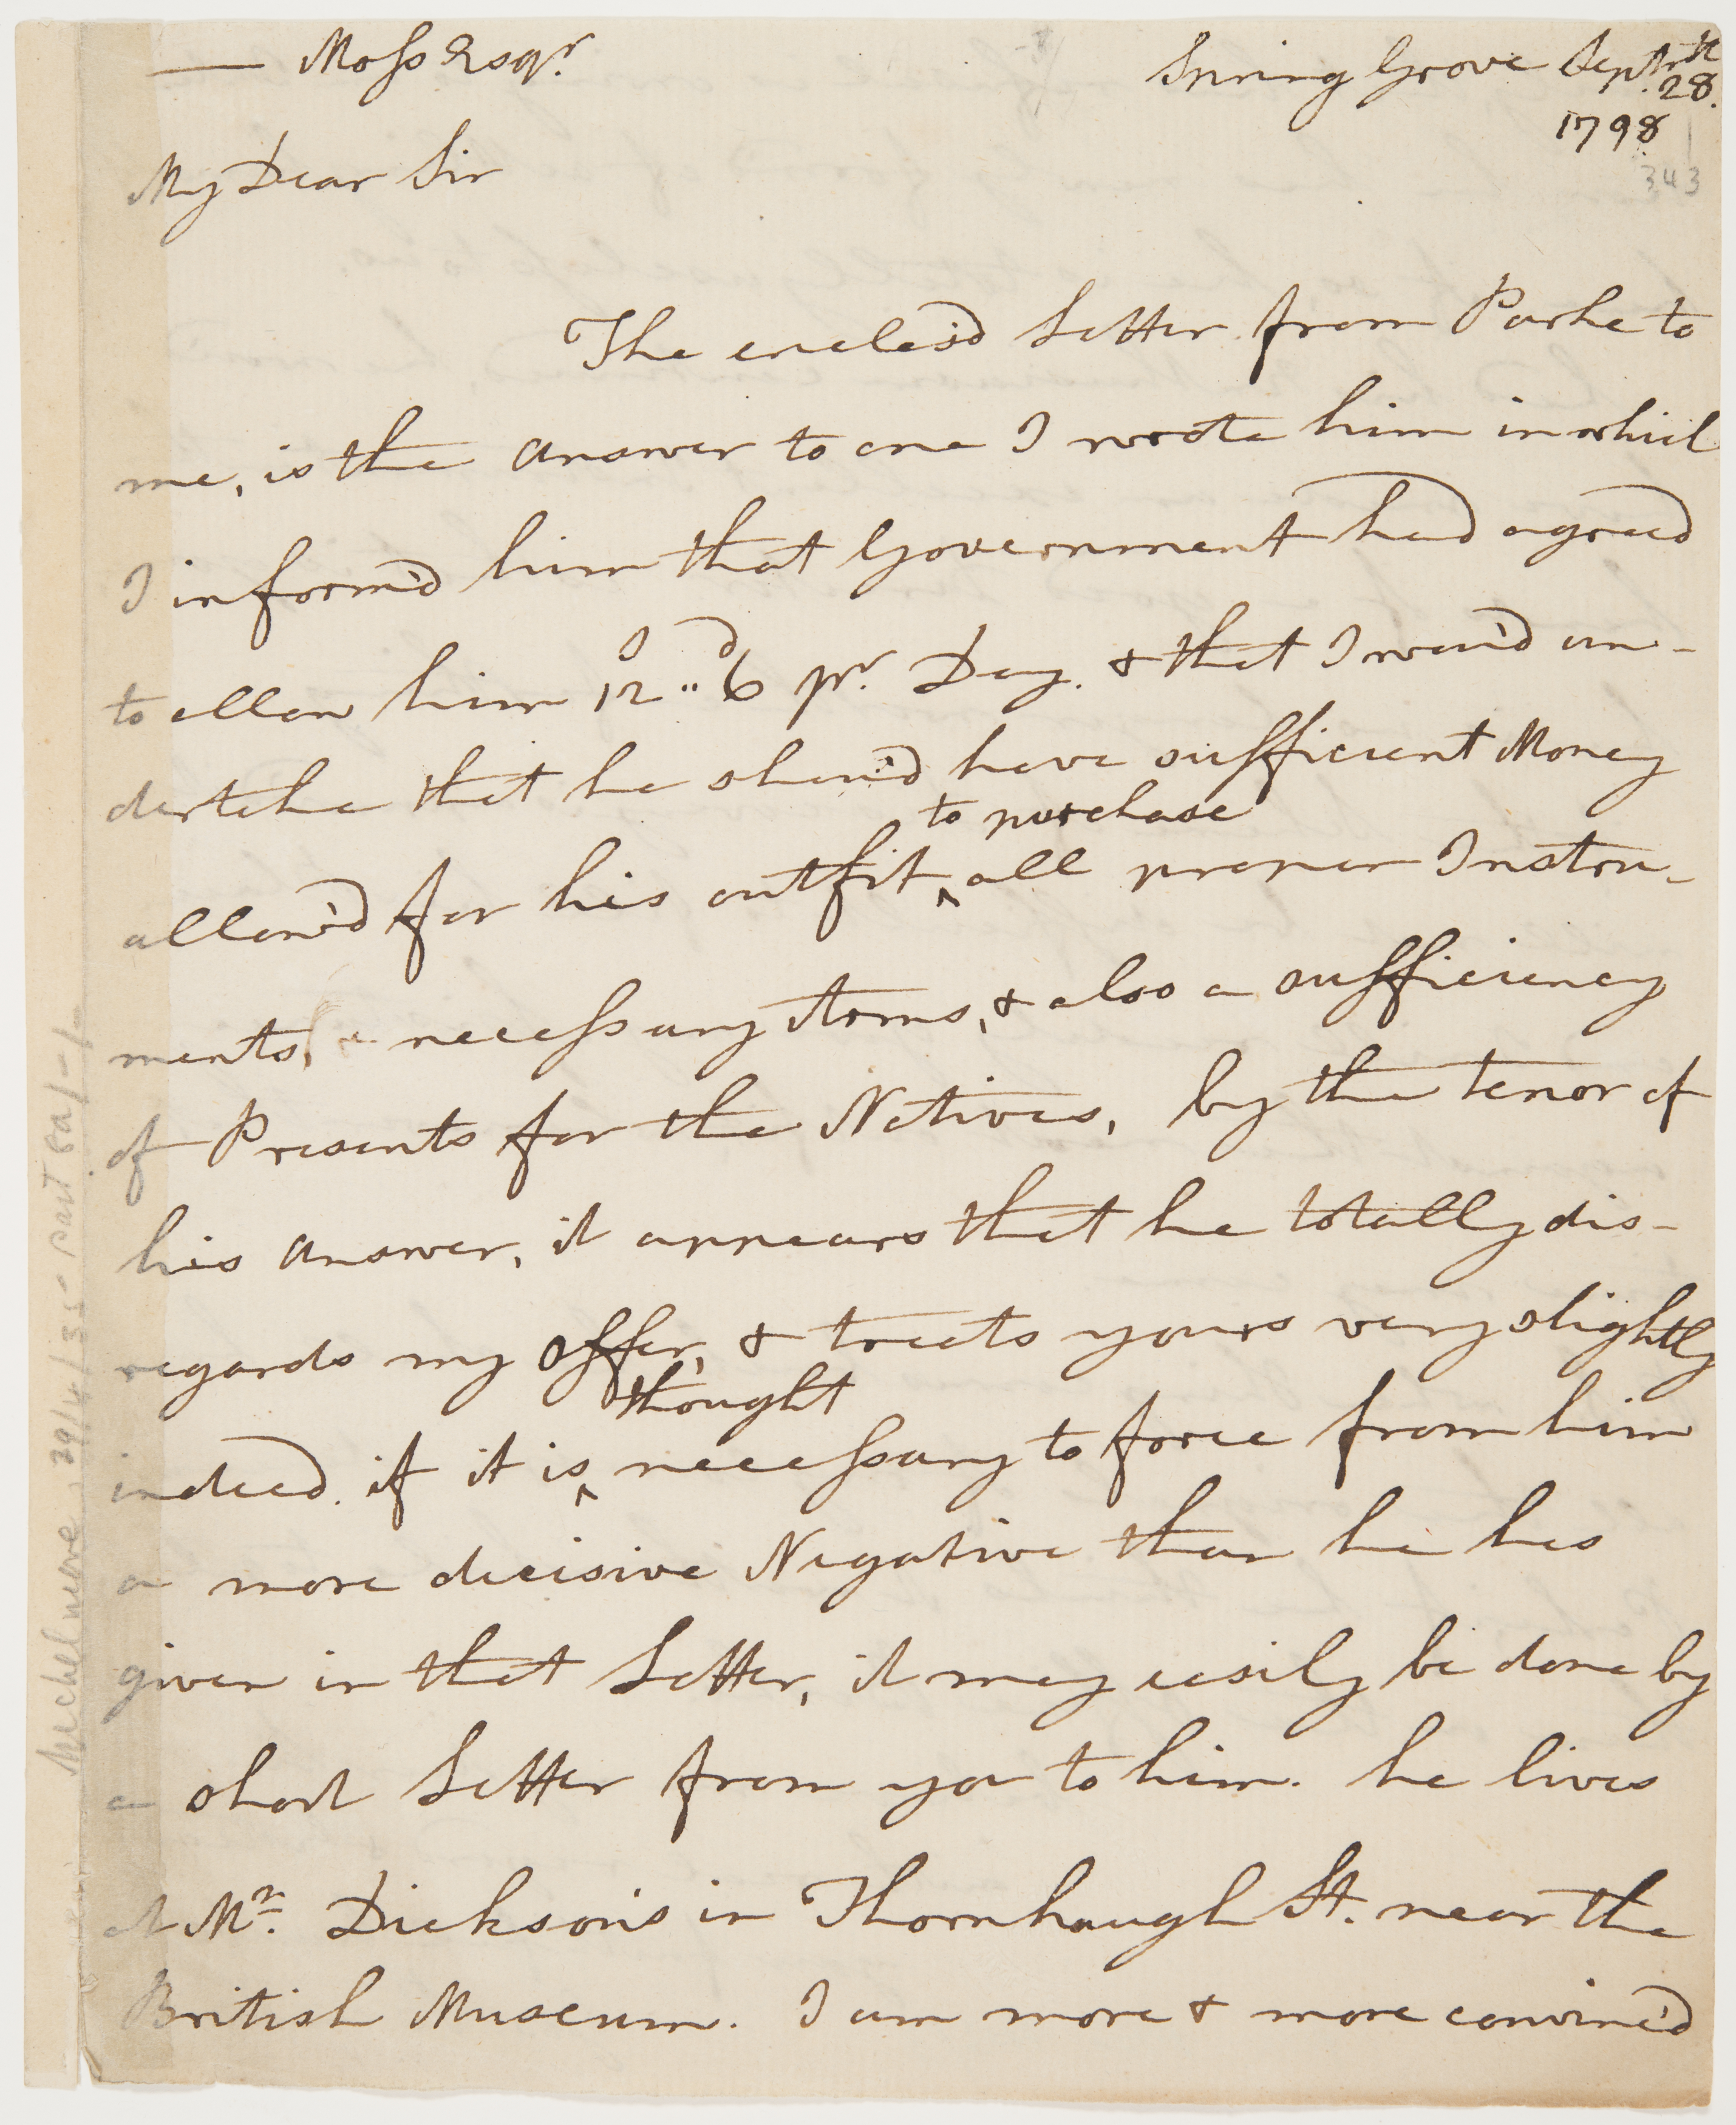 —— Moss Esqr.
Spring Grove Septr. 28.
1798
343
My Dear Sir
The enclos'd Letter from Parke to
me, is the answer to one I wrote him in which
I inform'd him that Government had agreed
to allow him 12s..6d pr. Day. & that I wou'd un-
dertake that he shou'd have sufficient Money
to purchase
allow'd for his outfit ^ all proper Instru-
ments, necessary Arms, & also a sufficiency
of Presents for the Natives, by the tenor of
his answer, it appears that he totally dis-
regards my offer, & treats yours very slightly
thought
indeed. if it is ^ necessary to force from him
a more decisive Negative than he has
given in that Letter, it may easily be done by
a short Letter from you to him. he lives
at Mr. Dickson's in Thornhaugh St. near the
British Museum. I am more & more convinc'd